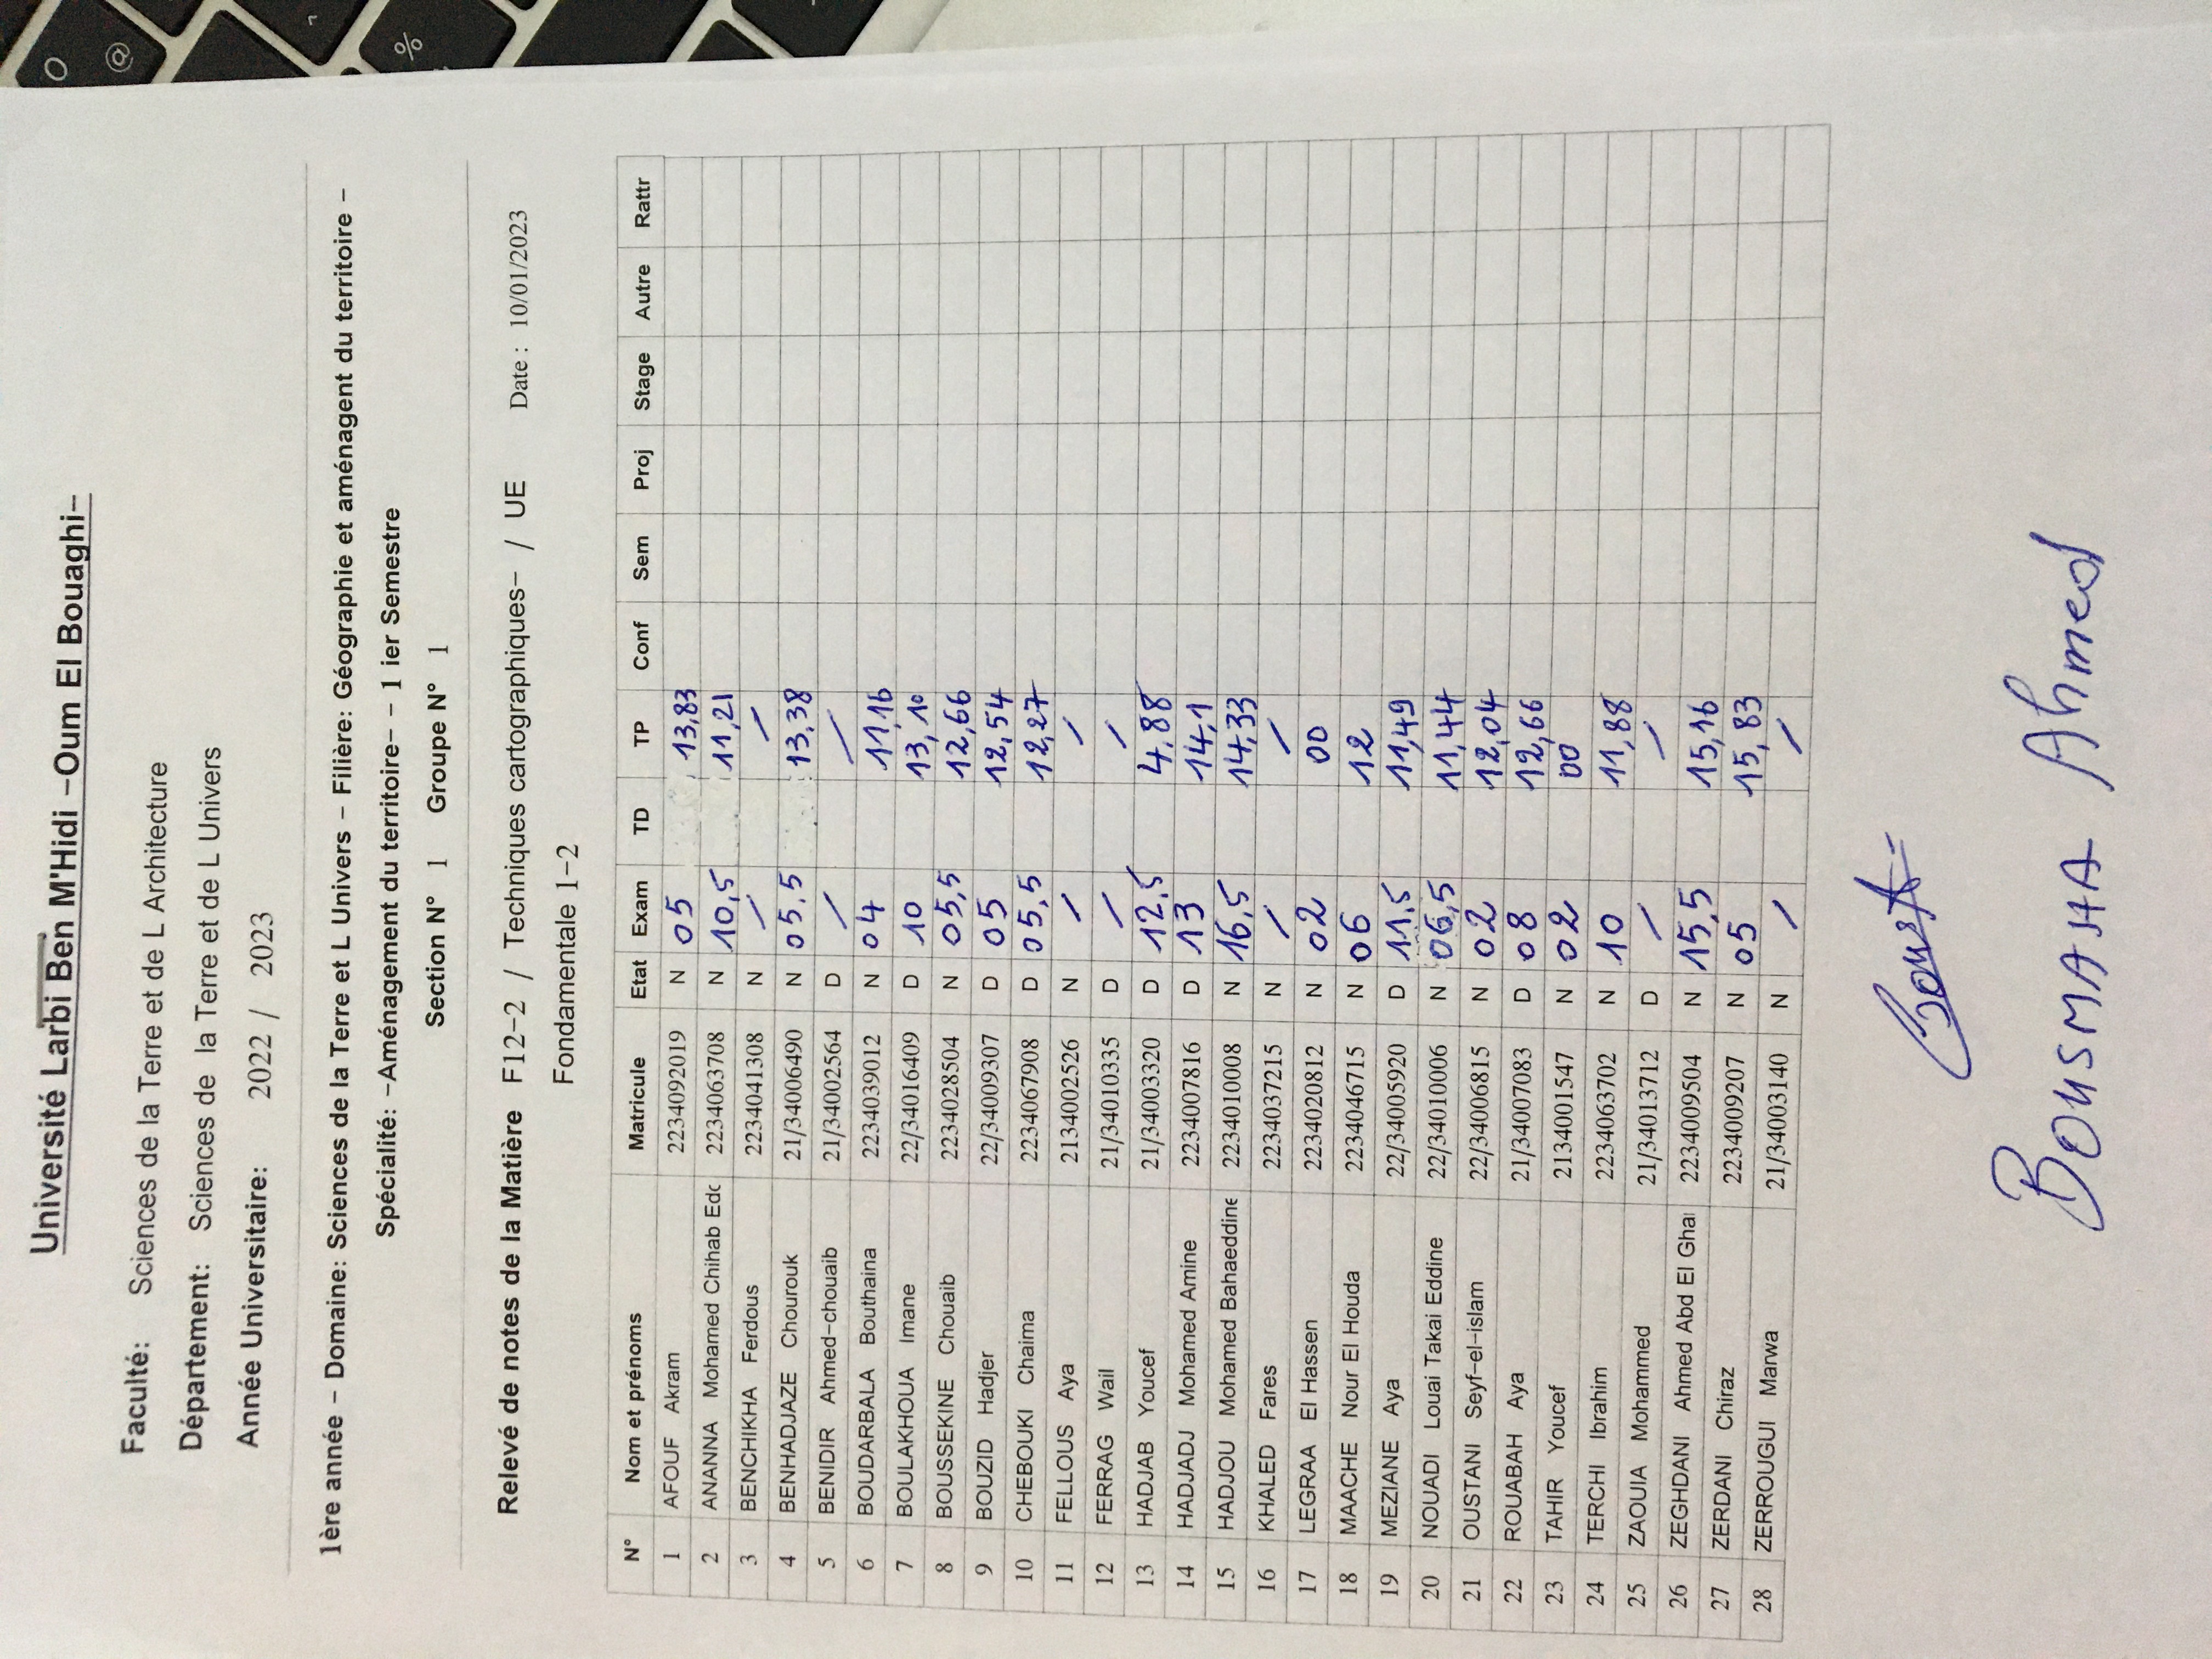 Université Larbi Ben M'Hidi -Oum El Bouaghi-
Faculté: Sciences de la Terre et de L Architecture
Département: Sciences de la Terre et de L Univers
Année Universitaire: 2022 / 2023
1ère année - Domaine: Sciences de la Terre et L Univers - Filière: Géographie et aménagent du territoire -
Spécialité: -Aménagement du territoire- - 1 ier Semestre
Section N° 1 Groupe N° 1
Relevé de notes de la Matière F12-2 / Techniques cartographiques- / UE Date : 10/01/2023
Fondamentale 1-2
N° Nom et prénoms Matricule Etat Exam TD TP Conf Sem Proj Stage Autre Rattr
1 AFOUF Akram 2234092019 N 05 13,83
2 ANANNA Mohamed Chihab Edd 2234063708 N 10,5 11,21
3 BENCHIKHA Ferdous 2234041308 N / /
4 BENHADJAZE Chourouk 21/34006490 N 05,5 13,38
5 BENIDIR Ahmed-chouaib 21/34002564 D / /
6 BOUDARBALA Bouthaina 2234039012 N 04 11,16
7 BOULAKHOUA Imane 22/34016409 D 10 13,10
8 BOUSSEKINE Chouaib 2234028504 N 05,5 12,66
9 BOUZID Hadjer 22/34009307 D 05 12,54
10 CHEBOUKI Chaima 2234067908 D 05,5 12,27
11 FELLOUS Aya 2134002526 N / /
12 FERRAG Wail 21/34010335 D / /
13 HADJAB Youcef 21/34003320 D 12,5 4,88
14 HADJADJ Mohamed Amine 2234007816 D 13 14,1
15 HADJOU Mohamed Bahaeddine 2234010008 N 16,5 14,33
16 KHALED Fares 2234037215 N / /
17 LEGRAA El Hassen 2234020812 N 02 00
18 MAACHE Nour El Houda 2234046715 N 06 12
19 MEZIANE Aya 22/34005920 D 11,5 11,49
20 NOUADI Louai Takai Eddine 22/34010006 N 06,5 11,44
21 OUSTANI Seyf-el-islam 22/34006815 N 02 12,04
22 ROUABAH Aya 21/34007083 D 08 12,66
23 TAHIR Youcef 2134001547 N 02 00
24 TERCHI Ibrahim 2234063702 N 10 11,88
25 ZAOUIA Mohammed 21/34013712 D / /
26 ZEGHDANI Ahmed Abd El Ghai 2234009504 N 15,5 15,16
27 ZERDANI Chiraz 2234009207 N 05 15,83
28 ZERROUGUI Marwa 21/34003140 N / /
BOUSMAHA Ahmed